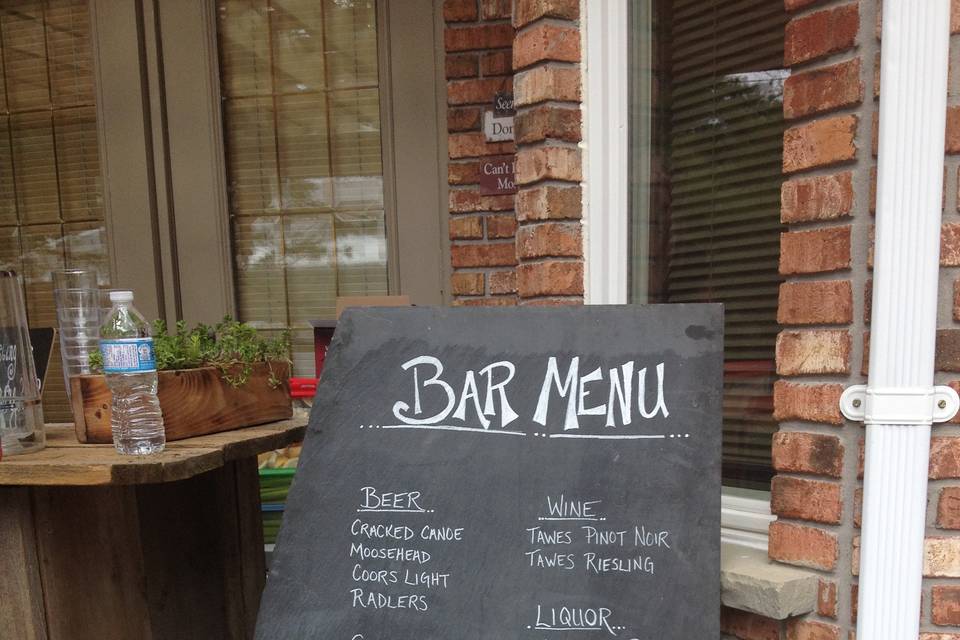 BAR MENU
BEER
CRACKED CANOE
MOOSEHEAD
COORS LIGHT
RADLERS
WINE
TAWES PINOT NOIR
TAWES RIESLING
LIQUOR...
Can't